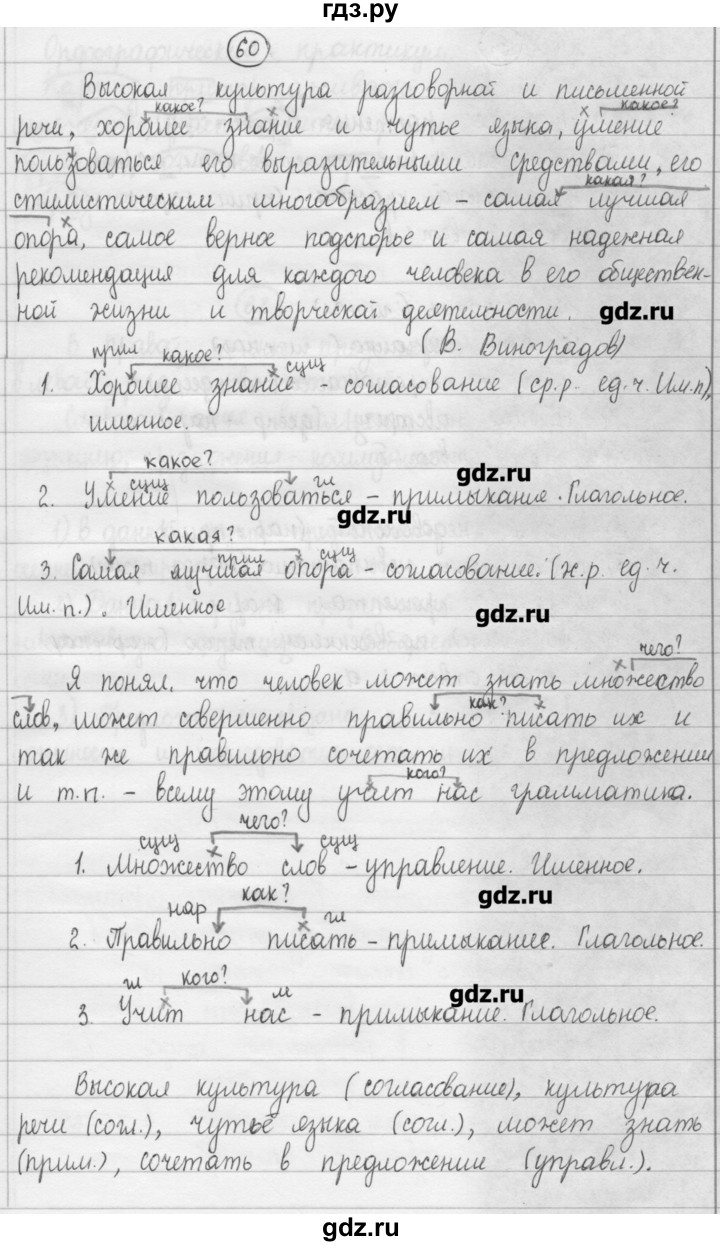 гдз.ру
60
Высокая культура разговорной и письменной
какое? какое?
речи, хорошее знание и чутье языка, умение
пользоваться его выразительными средствами, его
какая?
стилистическим многообразием - самая лучшая
опора, самое верное подспорье и самая надежная
рекомендация для каждого человека в его обществен-
ной жизни и творческой деятельности. gdz.ru
(В. Виноградов)
прил какое? сущ
1. Хорошее знание - согласование (ср.р. ед.ч. Им.п),
именное.
какое? gdz.ru
сущ гл
2. Умение пользоваться - примыкание. Глагольное.
gdz.ru
какая?
прил сущ
3. Самая лучшая опора - согласование. (ж.р. ед.ч.
Им.п.). Именное gdz.ru
чего?
Я понял, что человек может знать множество
как?
слов, может совершенно правильно писать их и
так же правильно сочетать их в предложении
кого?
и т.п. - всему этому учит нас грамматика.
чего?
сущ сущ
1. Множество слов - управление. Именное.
gdz.ru
как?
нар гл
2. Правильно писать - примыкание. Глагольное.
гл кого? м
gdz.ru
3. Учит нас - примыкание. Глагольное.
Высокая культура (согласование), культура
речи (согл.), чутьё языка (согл.), может знать
(прим.), сочетать в предложении (управл.).
gdz.ru